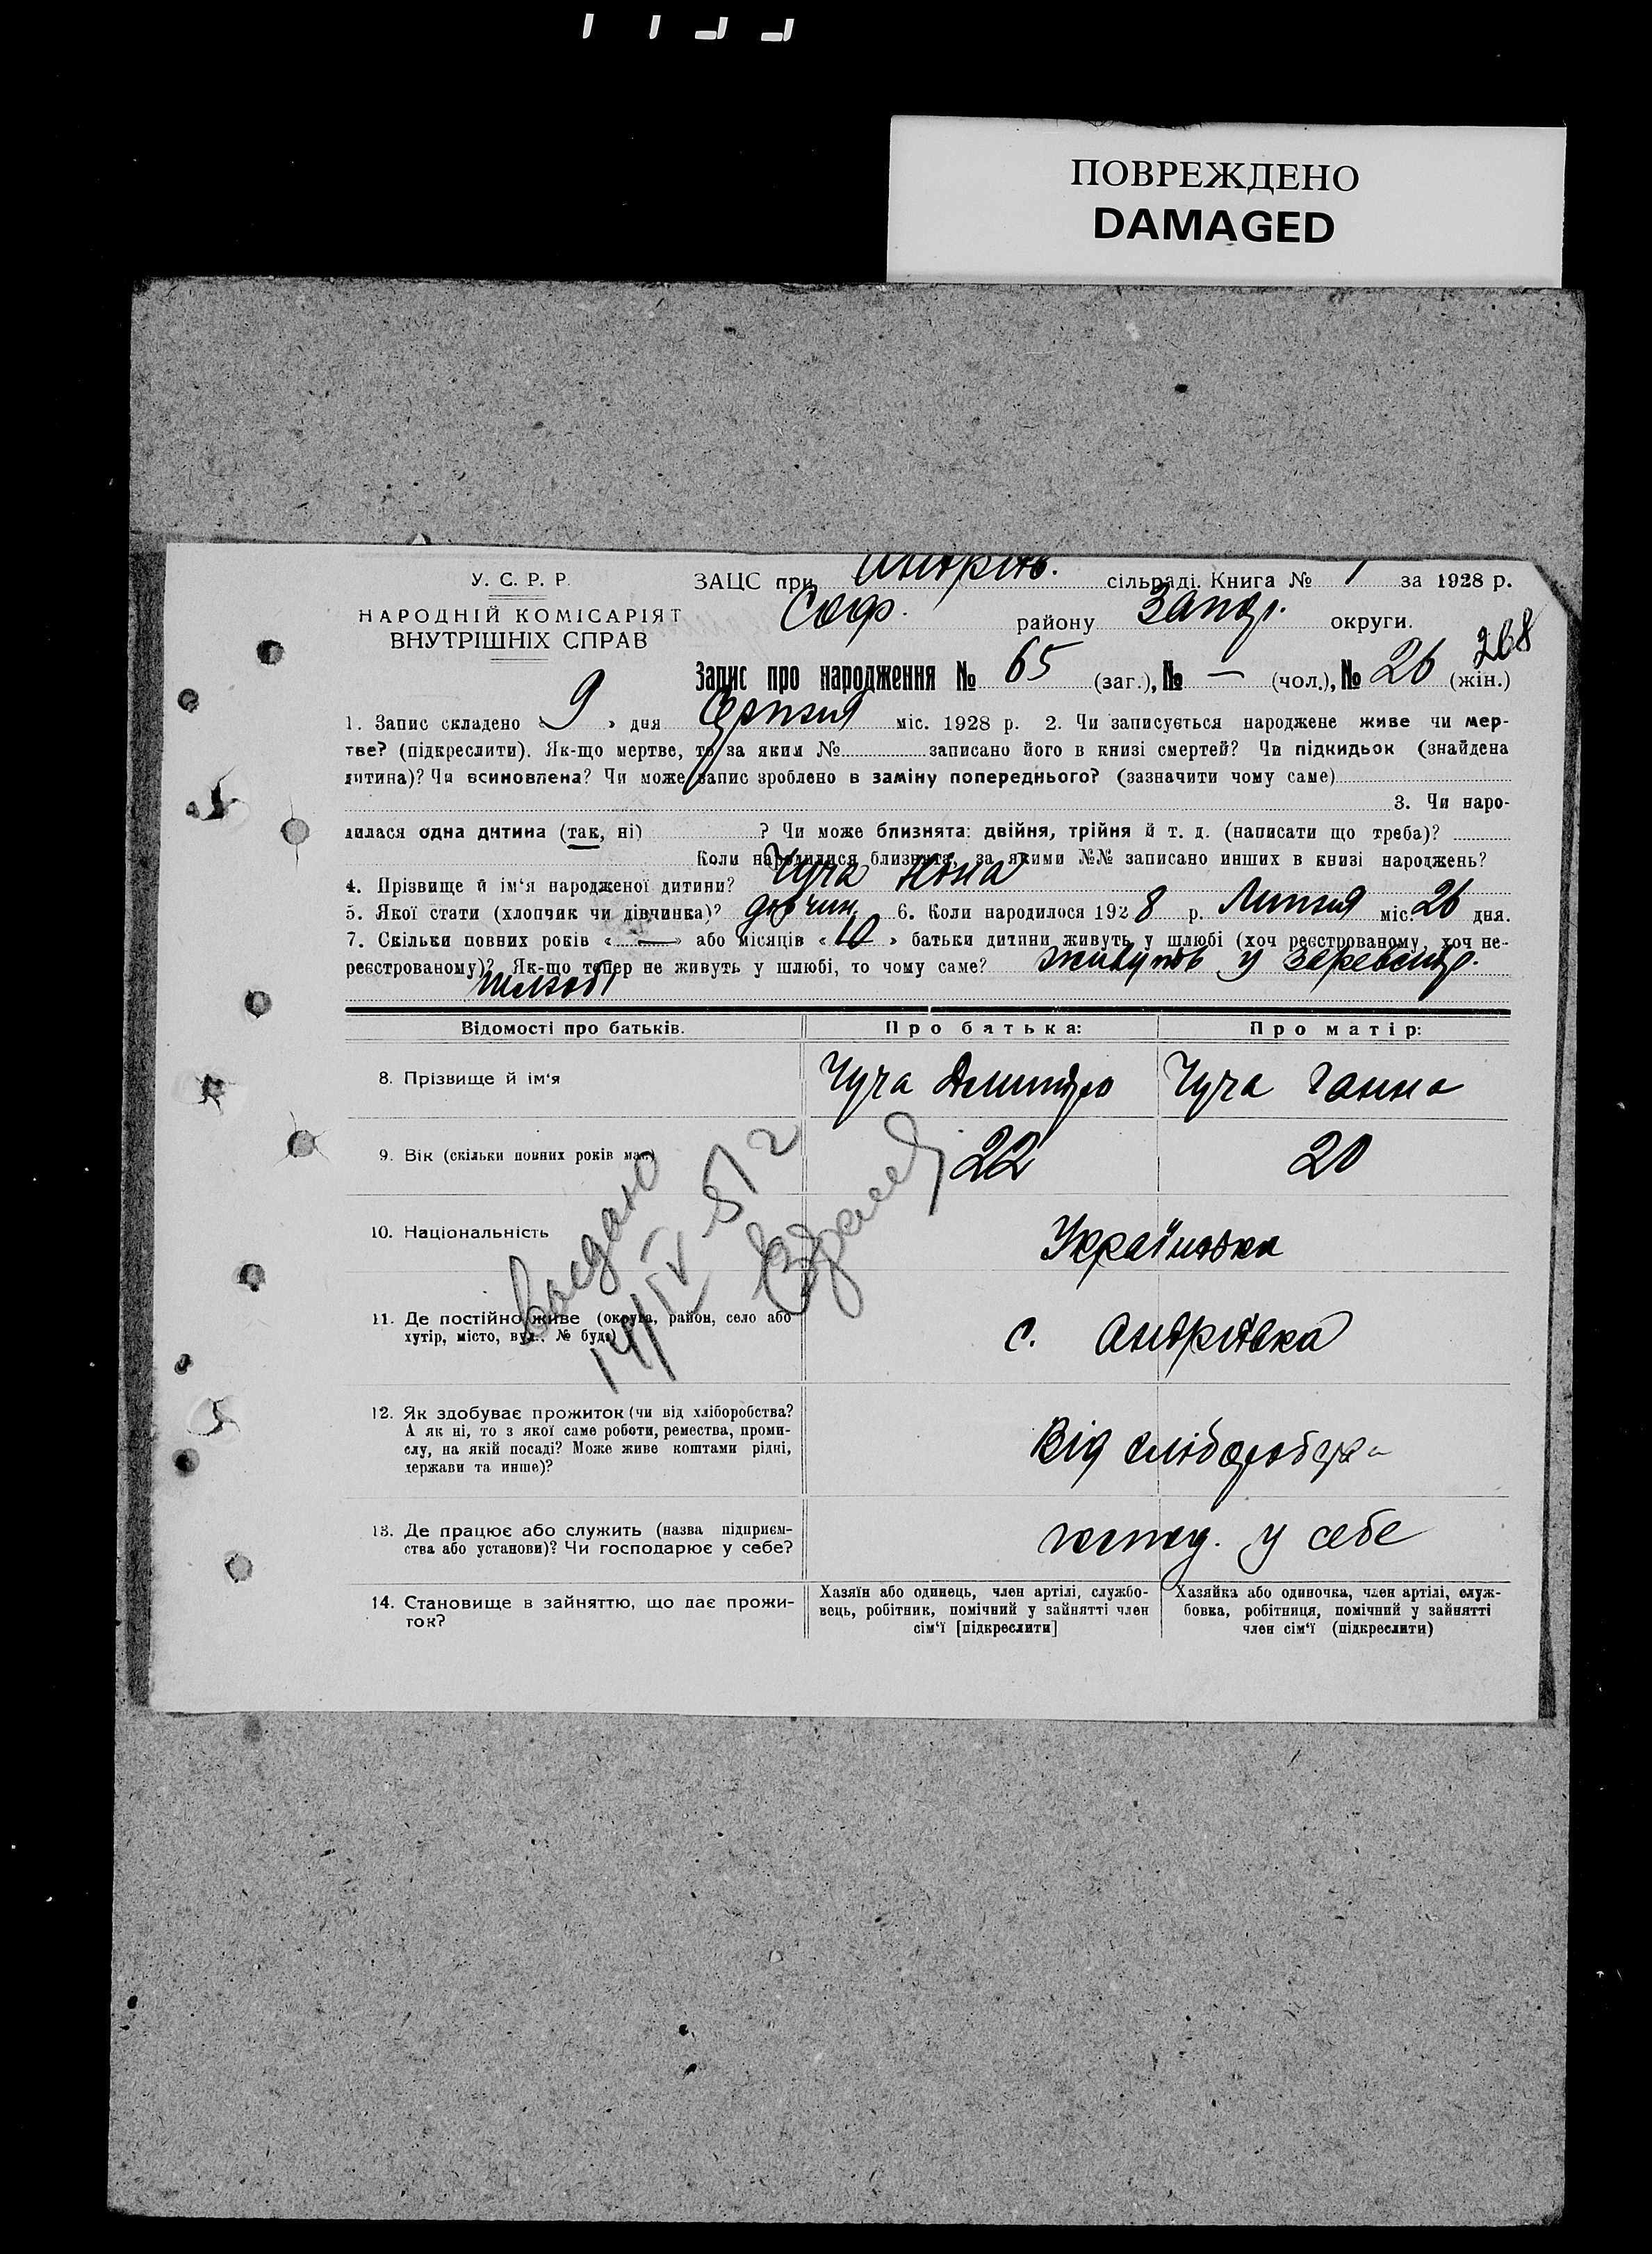 ПОВРЕЖДЕНО
DAMAGED
У. С. Р. Р.
НАРОДНІЙ КОМІСАРІЯТ
ВНУТРІШНІХ СПРАВ
ЗАЦС при Андріїв. сільраді. Книга № 1 за 1928 р.
Соф. району Запор. округи.
268
Запис про народження № 65 (заг.), № — (чол.), № 26 (жін.)
1. Запис складено «9» дня Серпня міс. 1928 р. 2. Чи записується народжене живе чи мер-
тве? (підкреслити). Як-що мертве, то за яким № записано його в книзі смертей? Чи підкидьок (знайдена
дитина)? Чи всиновлена? Чи може запис зроблено в заміну попереднього? (зазначити чому саме)
3. Чи наро-
дилася одна дитина (так, ні) ? Чи може близнята: двійня, трійня й т. д. (написати що треба)?
Коли народилися близнята, за якими №№ записано инших в книзі народжень?
4. Прізвище й ім'я народженої дитини? Чуча Ніна
5. Якої стати (хлопчяк чи дівчинка)? дівчин. 6. Коли народилося 1928 р. Липня міс. 26 дня.
7. Скільки повних років «—» або місяців «10» батьки дитини живуть у шлюбі (хоч реєстрованому, хоч не-
реєстрованому)? Як-що тепер не живуть у шлюбі, то чому саме? живуть у
шлюбі
Відомості про батьків. Про батька: Про матір:
8. Прізвище й ім'я Чуча Дмитро Чуча Ганна
9. Вік (скільки повних років має) 22 20
10. Національність Українська
11. Де постійно живе (округа, район, село або
хутір, місто, вул., № буд.) с. Андріївка
12. Як здобуває прожиток (чи від хліборобства?
А як ні, то з якої саме роботи, ремества, проми-
слу, на якій посаді? Може живе коштами рідні,
держави та инше)? Від хлібороб
13. Де працює або служить (назва підприєм-
ства або установи)? Чи господарює у себе? господ. у себе
14. Становище в зайняттю, що дає прожи-
ток?
Хазяїн або одинець, член артілі, службо-
вець, робітник, помічний у зайнятті член
сім'ї [підкреслити]
Хазяйка або одиночка, член артілі, служ-
бовка, робітниця, помічний у зайнятті
член сім'ї (підкреслити)